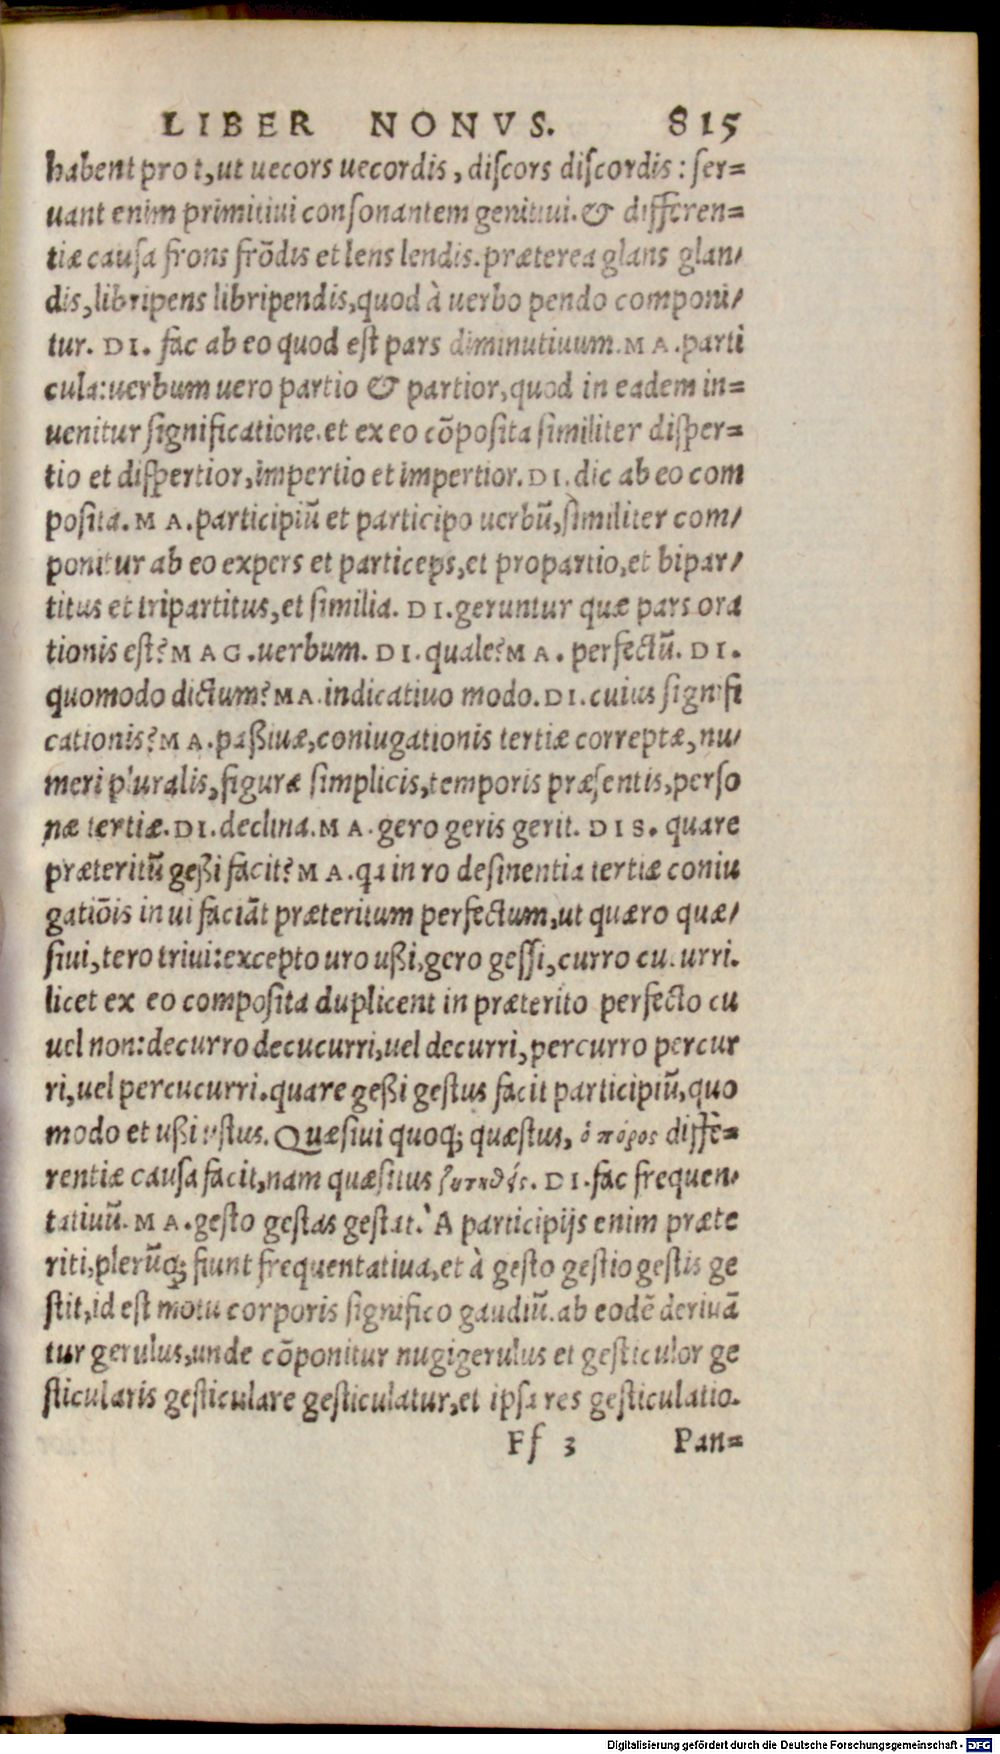 LIBER NONVS. 815
habent pro t, ut uecors uecordis, diſcors diſcordis: ſer=
uant enim primitiui conſonantem genitiui. & differen=
tiæ cauſa frons frõdis et lens lendis. præterea glans glan/
dis, libripens libripendis, quod à uerbo pendo componi/
tur. DI. fac ab eo quod eſt pars diminutiuum. MA. parti
cula: uerbum uero partio & partior, quod in eadem in=
uenitur ſignificatione. et ex eo cõpoſita ſimiliter diſper=
tio et diſpertior, impertio et impertior. DI. dic ab eo com
poſita. MA. participiũ et participo uerbũ, ſimiliter com/
ponitur ab eo expers et particeps, et propartio, et bipar/
titus et tripartitus, et ſimilia. DI. geruntur quæ pars ora
tionis eſt? MAG. uerbum. DI. quale? MA. perfectũ. DI.
quomodo dictum? MA. indicatiuo modo. DI. cuius ſignifi
cationis? MA. paßiuæ, coniugationis tertiæ correptæ, nu/
meri pluralis, figuræ ſimplicis, temporis præſentis, perſo
næ tertiæ. DI. declina. MA. gero geris gerit. DIS. quare
præteritũ geßi facit? MA. qa in ro deſinentia tertiæ coniu
gatiõis in ui faciãt præteritum perfectum, ut quæro quæ/
ſiui, tero triui: excepto uro ußi, gero geſſi, curro cucurri.
licet ex eo compoſita duplicent in præterito perfecto cu
uel non: decurro decucurri, uel decurri, percurro percur
ri, uel percucurri. quare geßi geſtus facit participiũ, quo
modo et ußi uſtus. Quæſiui quoq; quæſtus, ὁ πόρος diffe=
rentiæ cauſa facit, nam quæſitus ζητηθείς. DI. fac frequen/
tatiuũ. MA. geſto geſtas geſtat. A participijs enim præte
riti, plerũq; fiunt frequentatiua, et à geſto geſtio geſtis ge
ſtit, id eſt motu corporis ſignifico gaudiũ. ab eodẽ deriuã
tur gerulus, unde cõponitur nugigerulus et geſticulor ge
ſticularis geſticulare geſticulatur, et ipſa res geſticulatio.
Ff 3 Pan=
Digitalisierung gefördert durch die Deutsche Forschungsgemeinschaft - DFG